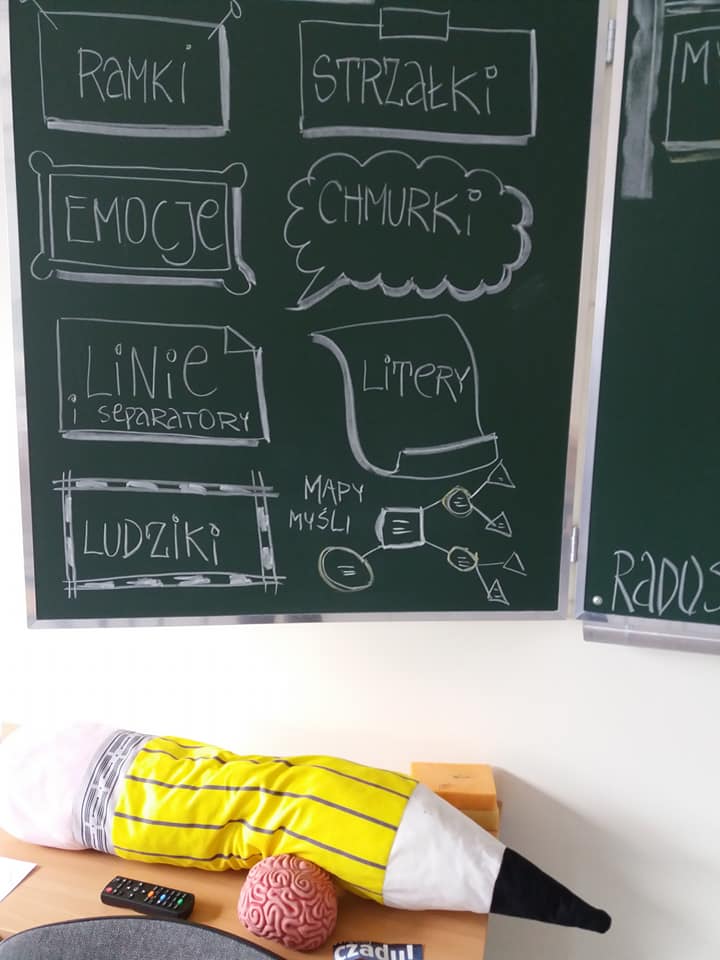 RaMKi
STRZaŁKi
EMOCJe
CHMURKi
LiNie
i separatory
LiTeRY
LUDZiKi
MAPY
MYŚLI
czadu!